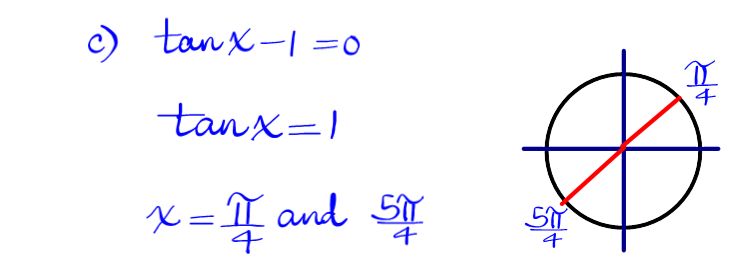 c) tanx-1=0
tanx=1
x=π/4 and 5π/4
π/4
5π/4